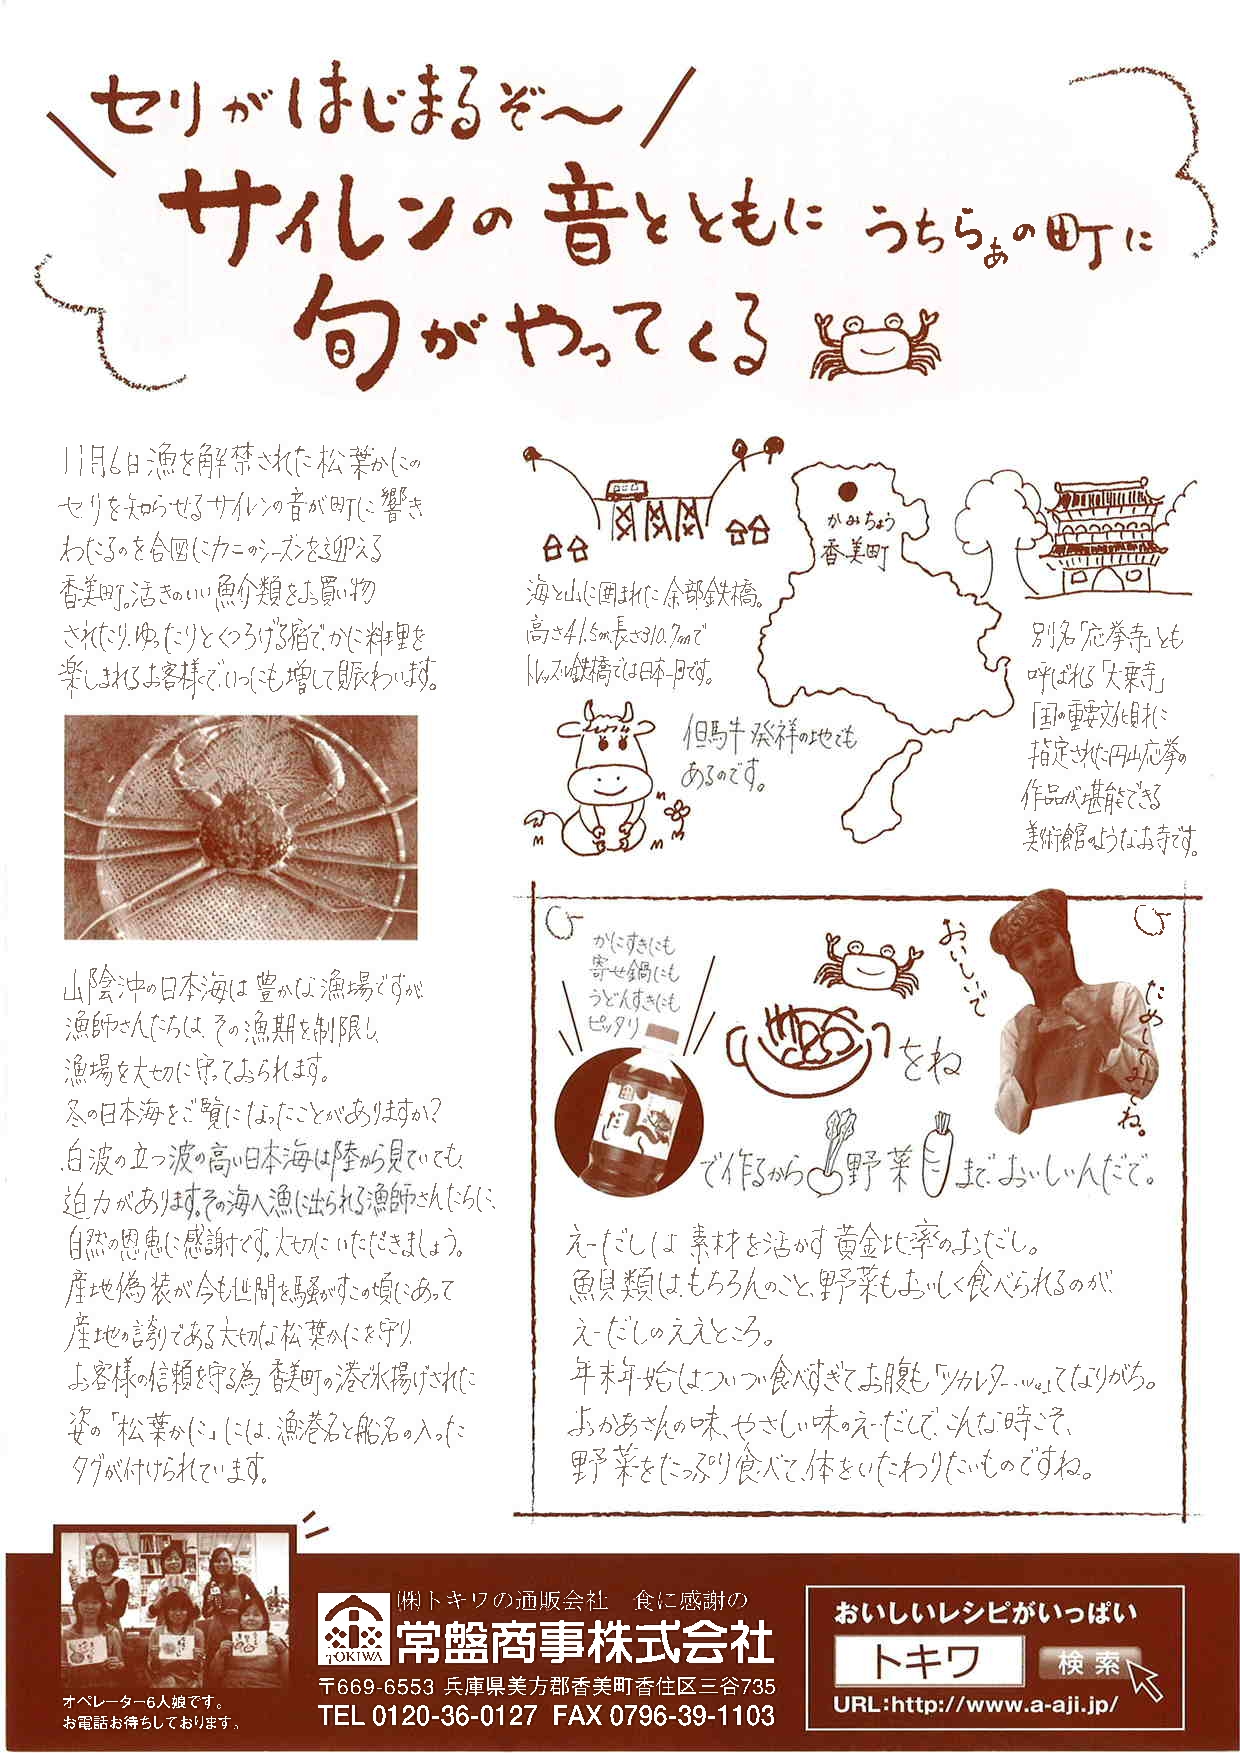 セリがはじまるぞ〜
サイレンの音とともに うちらぁの町に
旬がやってくる
11月6日漁を解禁された松葉かにの
セリを知らせるサイレンの音が町に響き
わたるのを合図にカニのシーズンを迎える
香美町。活きのいい魚介類をお買い物
されたり、ゆったりとくつろげる宿で、かに料理を
楽しまれるお客様で、いつにも増して賑わいます。
山陰沖の日本海は豊かな漁場ですが
漁師さんたちは、その漁期を制限し、
漁場を大切に守っておられます。
冬の日本海をご覧になったことがありますか?
白波の立つ波の高い日本海は陸から見ていても、
迫力があります。その海へ漁に出られる漁師さんたちに、
自然の恩恵に感謝です。大切にいただきましょう。
産地偽装が今も世間を騒がすこの頃にあって
産地の誇りである大切な松葉かにを守り、
お客様の信頼を守る為、香美町の港で水揚げされた
姿の「松葉かに」には、漁港名と船名の入った
タグが付けられています。
かみちょう
香美町
海と山に囲まれた余部鉄橋。
高さ41.5m、長さ310.7mで
トレッスル鉄橋では日本一でです。
但馬牛発祥の地でも
あるのです。
別名「応挙寺」とも
呼ばれる「大乗寺」
国の重要文化財に
指定された円山応挙の
作品が堪能できる
美術館のようなお寺です。
かにすきにも
寄せ鍋にも
うどんすきにも
ピッタリ
おいしいで
ためしてみてね。
えーだし
をね
で作るから 野菜 まで、おいしいんだで。
えーだしは 素材を活かす黄金比率のおだし。
魚貝類は、もちろんのこと、野菜もおいしく食べられるのが、
えーだしのええところ。
年末年始はついつい食べすぎてお腹も「ツカレタ…」ってなりがち。
おかあさんの味、やさしい味のえーだしで、こんな時こそ、
野菜をたっぷり食べて、体をいたわりたいものですね。
オペレーター6人娘です。
お電話お待ちしております。
TOKIWA
㈱トキワの通販会社 食に感謝の
常盤商事株式会社
〒669-6553 兵庫県美方郡香美町香住区三谷735
TEL 0120-36-0127 FAX 0796-39-1103
おいしいレシピがいっぱい
トキワ 検索
URL:http://www.a-aji.jp/